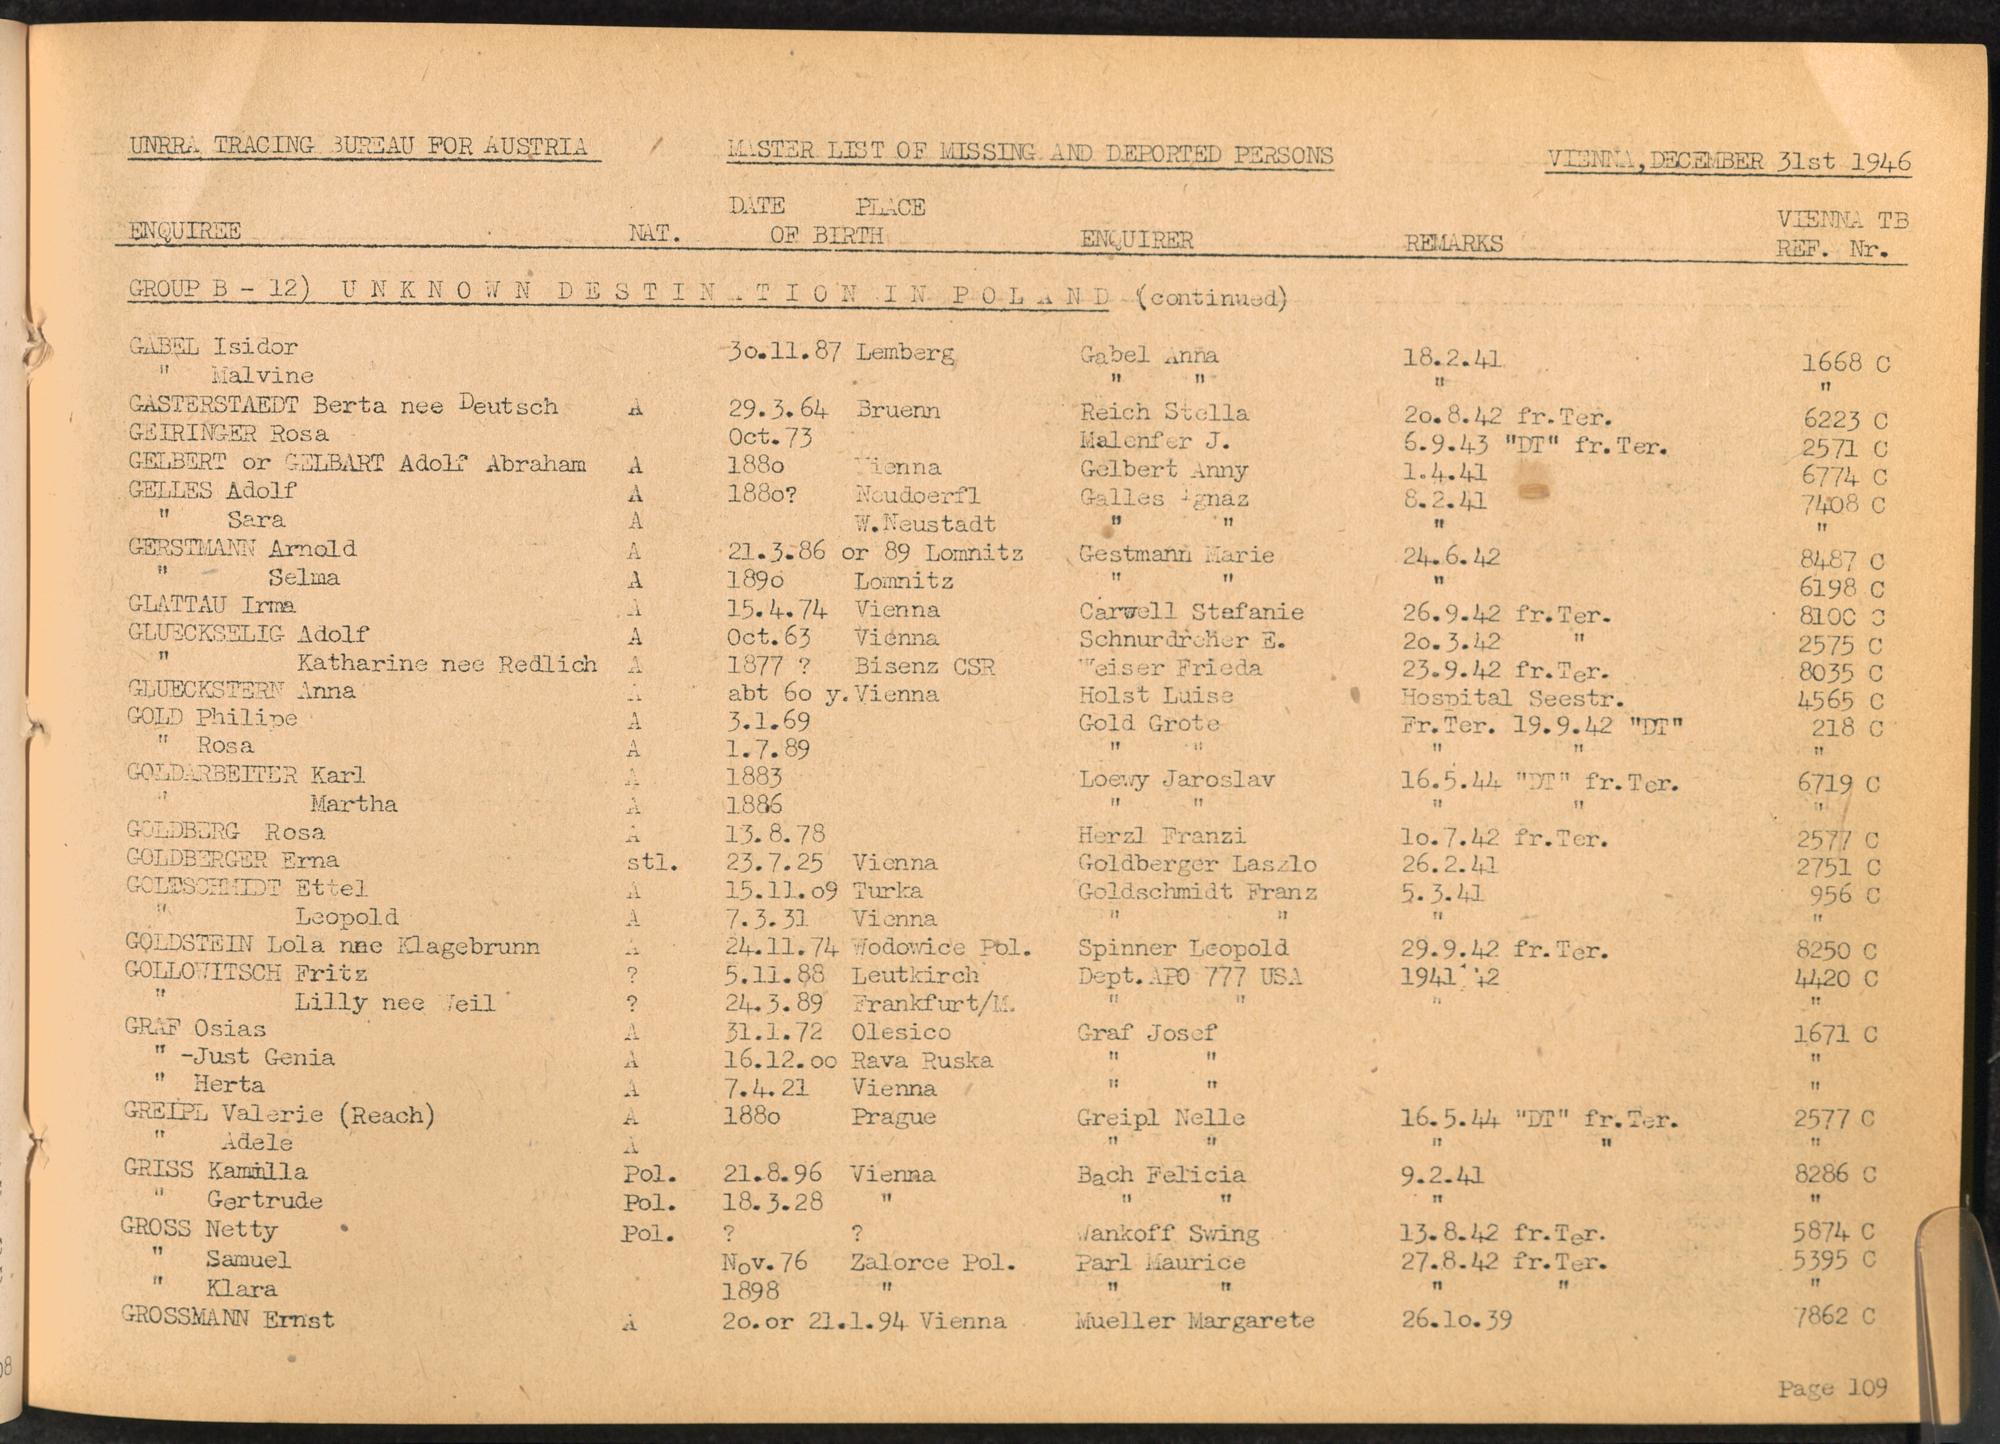 UNRRA TRACING BUREAU FOR AUSTRIA MASTER LIST OF MISSING AND DEPORTED PERSONS VIENNA, DECEMBER 31st 1946
DATE PLACE VIENNA TB
ENQUIREE NAT. OF BIRTH ENQUIRER REMARKS REF. Nr.
GROUP B - 12) UNKNOWN DESTINATION IN POLAND (continued)
GABEL Isidor 3o.11.87 Lemberg Gabel Anna 18.2.41 1668 C
" Malvine " " " "
GASTERSTAEDT Berta nee Deutsch A 29.3.64 Bruenn Reich Stella 2o.8.42 fr.Ter. 6223 C
GEIRINGER Rosa Oct.73 Malenfer J. 6.9.43 "DT" fr.Ter. 2571 C
GELBERT or GELBART Adolf Abraham A 188o Vienna Gelbert Anny 1.4.41 6774 C
GELLES Adolf A 188o? Neudoerfl Galles Ignaz 8.2.41 7408 C
" Sara A W.Neustadt " " " "
GERSTMANN Arnold A 21.3.86 or 89 Lomnitz Gestmann Marie 24.6.42 8487 C
" Selma A 189o Lomnitz " " " 6198 C
GLATTAU Irma A 15.4.74 Vienna Carwell Stefanie 26.9.42 fr.Ter. 8100 C
GLUECKSELIG Adolf A Oct.63 Vienna Schnurdreher E. 2o.3.42 " 2575 C
" Katharine nee Redlich A 1877 ? Bisenz CSR Weiser Frieda 23.9.42 fr.Ter. 8035 C
GLUECKSTERN Anna A abt 6o y. Vienna Holst Luise Hospital Seestr. 4565 C
GOLD Philipe A 3.1.69 Gold Grote Fr.Ter. 19.9.42 "DT" 218 C
" Rosa A 1.7.89 " " " " "
GOLDARBEITER Karl A 1883 Loewy Jaroslav 16.5.44 "DT" fr.Ter. 6719 C
" Martha A 1886 " " " " "
GOLDBERG Rosa A 13.8.78 Herzl Franzi 1o.7.42 fr.Ter. 2577 C
GOLDBERGER Erna stl. 23.7.25 Vienna Goldberger Laszlo 26.2.41 2751 C
GOLDSCHMIDT Ettel A 15.11.o9 Turka Goldschmidt Franz 5.3.41 956 C
" Leopold A 7.3.31 Vienna " " " "
GOLDSTEIN Lola nne Klagebrunn A 24.11.74 Wodowice Pol. Spinner Leopold 29.9.42 fr.Ter. 8250 C
GOLLOWITSCH Fritz ? 5.11.88 Leutkirch Dept.APO 777 USA 1941 '42 4420 C
" Lilly nee Weil ? 24.3.89 Frankfurt/M. " " " "
GRAF Osias A 31.1.72 Olesico Graf Josef 1671 C
" -Just Genia A 16.12.oo Rava Ruska " " "
" Herta A 7.4.21 Vienna " " "
GREIPL Valerie (Reach) A 188o Prague Greipl Nelle 16.5.44 "DT" fr.Ter. 2577 C
" Adele A " " " " "
GRISS Kamilla Pol. 21.8.96 Vienna Bach Felicia 9.2.41 8286 C
" Gertrude Pol. 18.3.28 " " " " "
GROSS Netty Pol. ? ? Wankoff Swing 13.8.42 fr.Ter. 5874 C
" Samuel Nov.76 Zalorce Pol. Parl Maurice 27.8.42 fr.Ter. 5395 C
" Klara 1898 " " " " " "
GROSSMANN Ernst A 2o.or 21.1.94 Vienna Mueller Margarete 26.1o.39 7862 C
Page 109